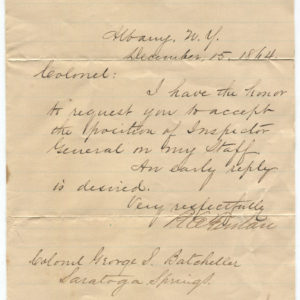 Albany, N.Y.
December 15, 1864
Colonel:
I have the honor
to request you to accept
the position of Inspector
General on my Staff.
An early reply
is desired.
Very respectfully
R E Fenton
Colonel George S. Batcheller
Saratoga Springs.